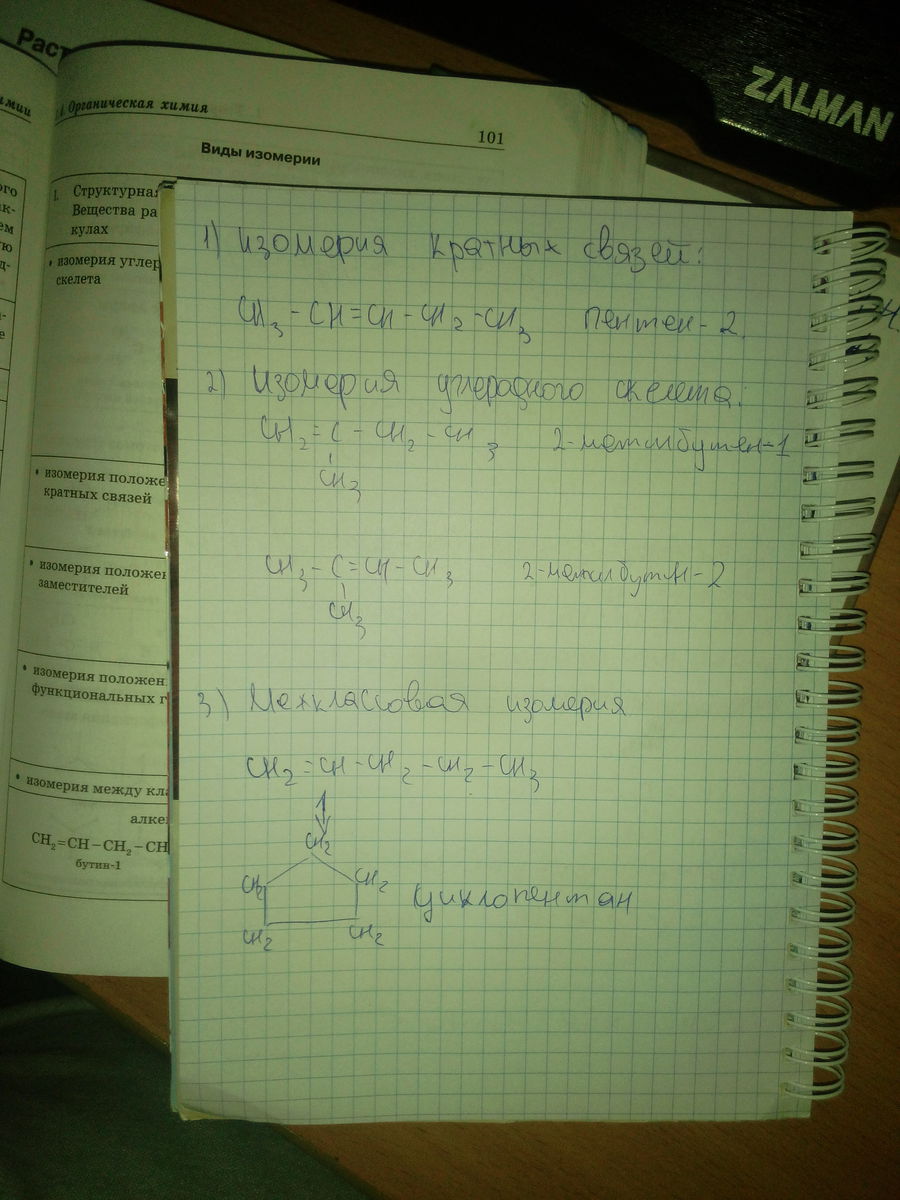 Раст
ZALMAN
имии
4. Органическая химия
101
Виды изомерии
I. Структурная
Вещества ра
кулах
• изомерия углер
скелета
• изомерия положе
кратных связей
• изомерия положен
заместителей
• изомерия положен
функциональных г
• изомерия между кла
алке
CH₂=CH–CH₂–CH
бутин-1
ого
ак-
ем
ую
д-
1) Изомерия кратных связей:
CH₃–CH=CH–CH₂–CH₃ пентен-2.
2) Изомерия углерадного скелета:
CH₂=C–CH₂–CH₃ 2-метилбутен-1
CH₃
CH₃–C=CH–CH₃ 2-метилбутен-2
CH₃
3) Межклассовая изомерия
CH₂=CH–CH₂–CH₂–CH₃
CH₂
CH₂ CH₂ Циклопентан
CH₂ CH₂